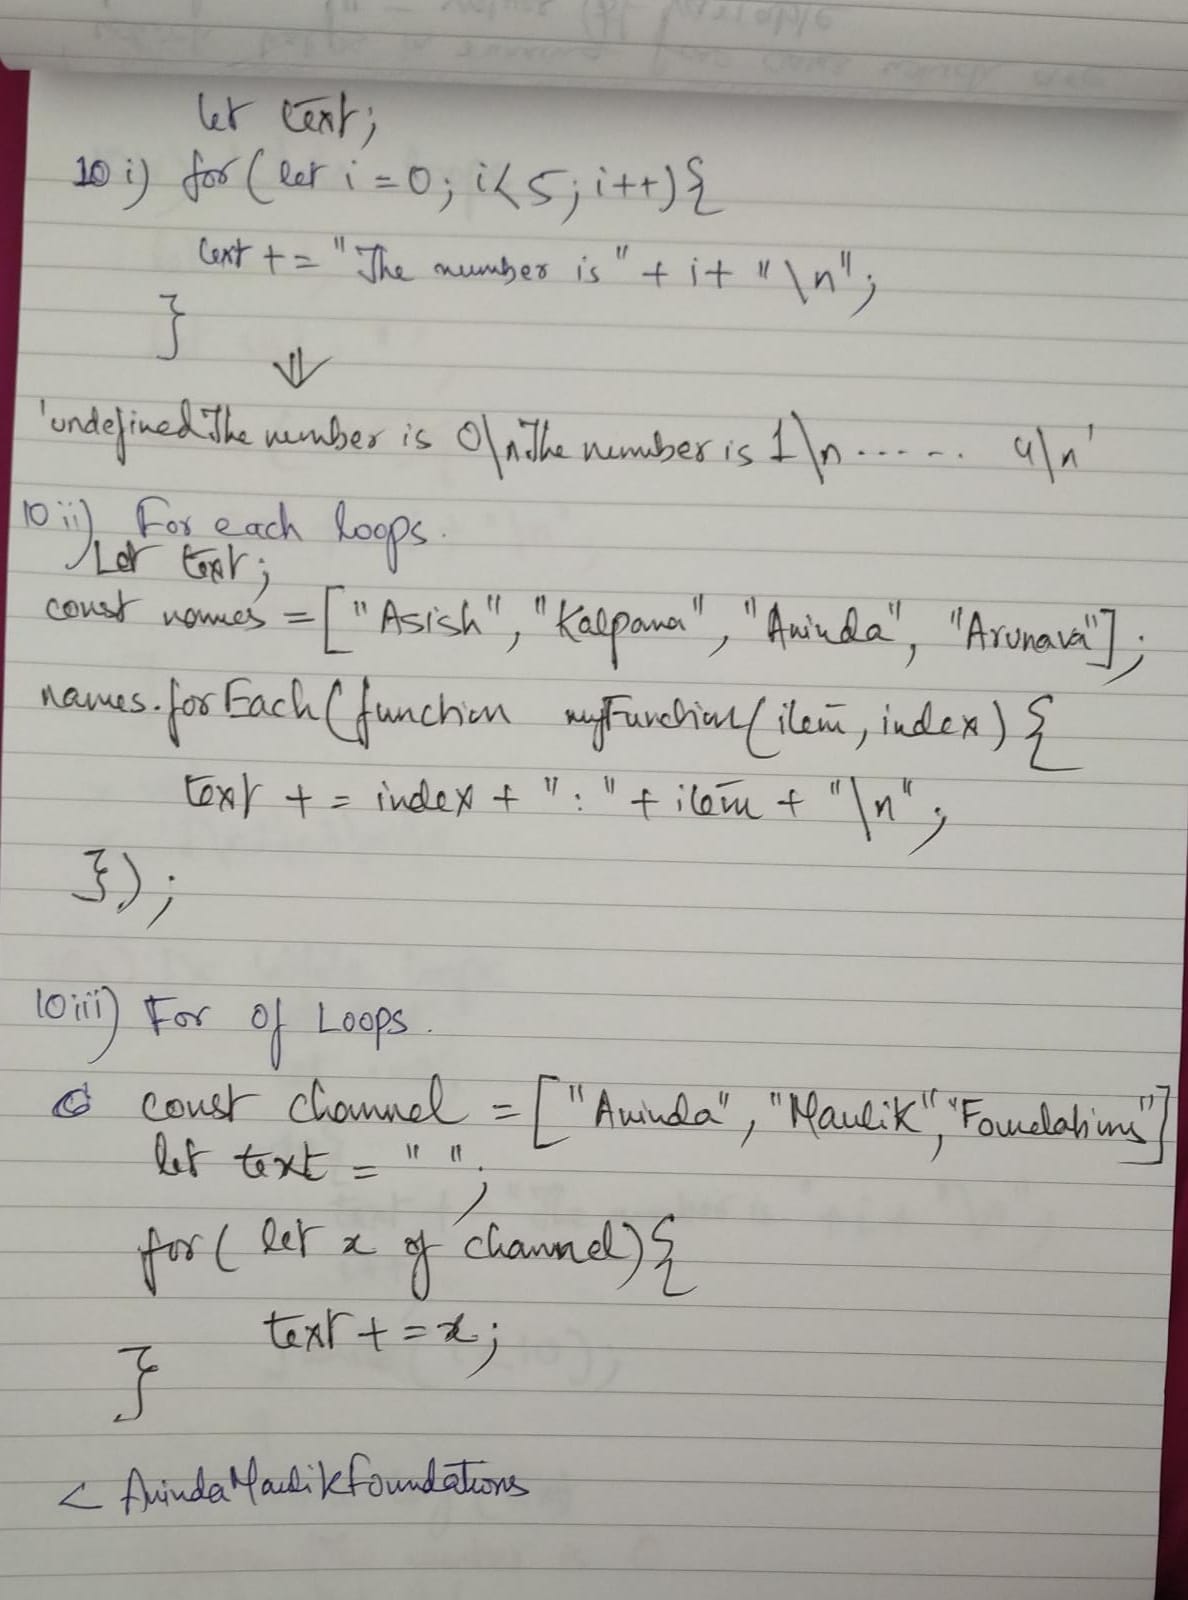 let text;
10 i) for ( let i = 0; i < 5; i++) {
text += "The number is " + i + "\n";
}
⇓
'undefined The number is 0\nThe number is 1\n ...... 4\n'
10 ii) For each loops.
Let text;
const names = ["Asish", "Kalpana", "Aninda", "Arunava"];
names.forEach(function myFunction(item, index) {
text += index + ":" + item + "\n";
});
10 iii) For of Loops.
const channel = ["Aninda", "Maulik", "Foundations"]
let text = " ";
for ( let x of channel) {
text += x;
}
< AnindaMaulikfoundations